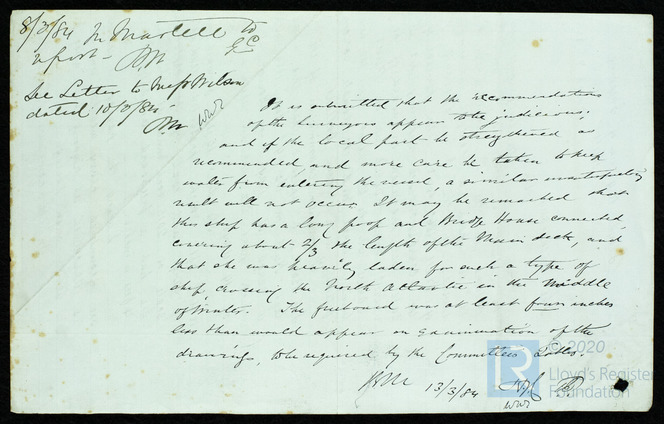 8/3/84 Mr Martell to
report
See Letter to Messrs Wilson
dated 10/3/84
WWR
It is submitted that the recommendations
of the Surveyors appear to be judicious;
and if the local part be strengthened as
recommended, and more care be taken to keep
water from entering the vessel, a similar unsatisfactory
result will not occur. It may be remarked that
this ship has a long poop and Bridge House connected,
covering about 2/3 the length of the Main deck, and
that she was heavily laden for such a type of
ship crossing the North Atlantic in the Middle
of Winter. The freeboard was at least four inches
less than would appear on examination of the
drawings, to be required by the Committee's Tables.
13/3/84
WWR
LR
© 2020
Lloyd's Register
Foundation